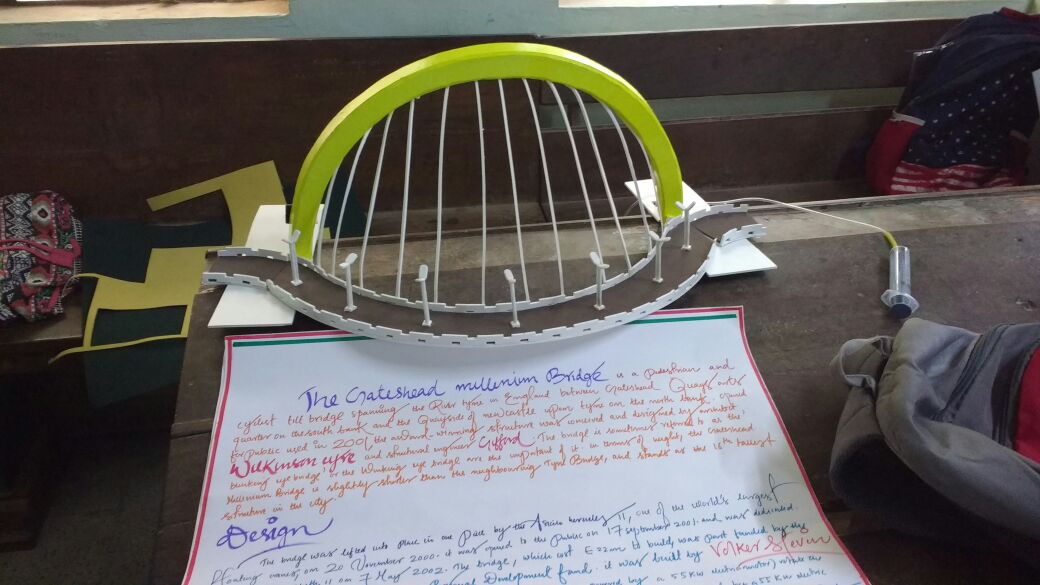 The Gateshead millenium Bridge is a pedestrian and
cyclist tilt bridge spanning the River tyne in England between Gateshead Quays arts
quarter on the south bank and the Quayside of newcastle upon tyne on the north bank. opened
for public used in 2001, the award-winning structure was conceived and designed by architect
Wilkinson eyre and structural engineer Gifford. The bridge is sometimes referred to as the,
blinking eye bridge, or the Winking eye bridge are the important of it in terms of weight, the Gateshead
Millenium Bridge is slightly shorter than the neighbouring Tyne Bridge, and stands as the 16th tallest
structure in the city.
Design
The bridge was lifted into place in one piece by the Asian hercules II, one of the world's largest
floating cranes, on 20 November 2000. it was opened to the public on 17 september 2001. and was dedicated
II on 7 May 2002. The bridge, which cost £22m to build, was part funded by the
Development fund. it was built by Volker Stevin
powered by a 55KW electric motor) rotate the
by a 55 KW electric